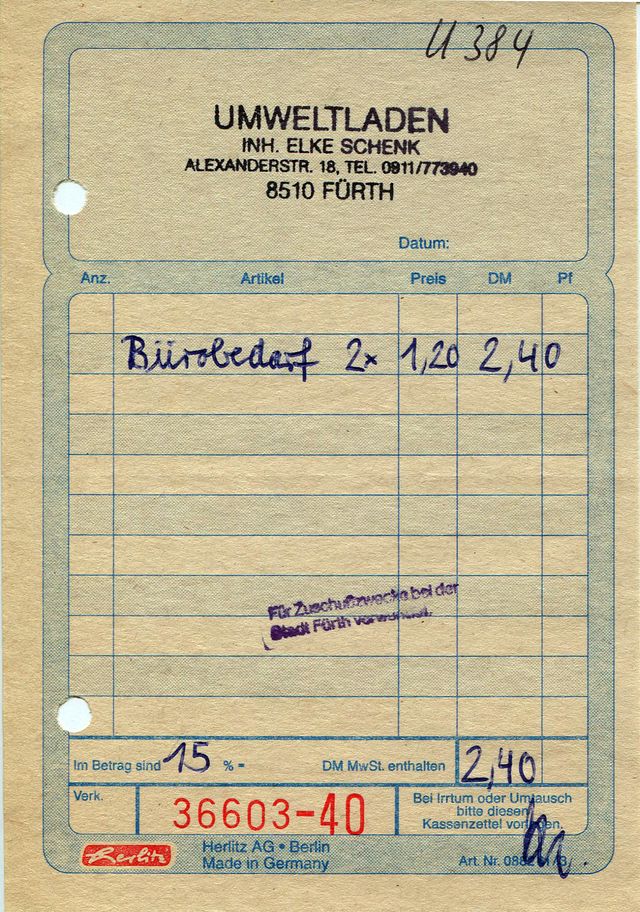 U 384
UMWELTLADEN
INH. ELKE SCHENK
ALEXANDERSTR. 18, TEL. 0911/773940
8510 FÜRTH
Datum:
Anz. Artikel Preis DM Pf
Bürobedarf 2x 1,20 2,40
Für Zuschußzwecke bei der
Stadt Fürth verwendet.
Im Betrag sind 15 % = DM MwSt. enthalten 2,40
Verk. 36603-40
Bei Irrtum oder Umtausch
bitte diesen
Kassenzettel vorlegen.
Herlitz
Herlitz AG • Berlin
Made in Germany
Art. Nr.